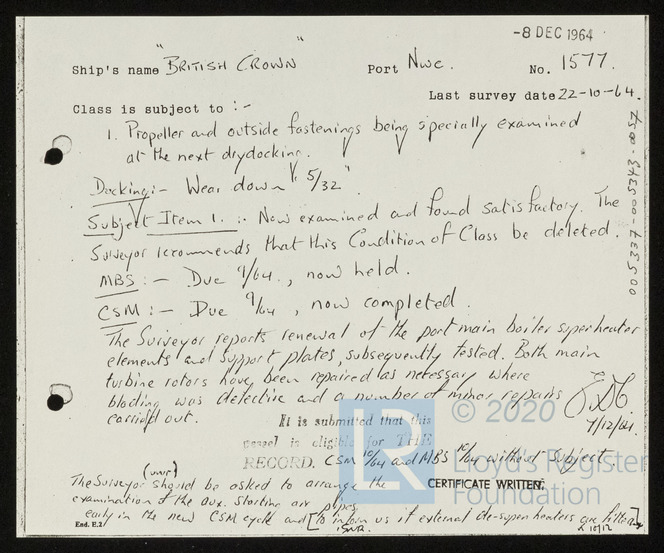 -8 DEC 1964
Ship's name "BRITISH CROWN" Port Nwc. No. 1577.
Last survey date 22-10-64.
Class is subject to :-
1. Propeller and outside fastenings being specially examined
at the next drydocking.
Docking:- Wear down "5/32"
Subject Item 1. :- Now examined and found satisfactory. The
Surveyor recommends that this Condition of Class be deleted.
MBS :- Due 9/64., now held.
CSM :- Due 9/64, now completed.
The Surveyor reports renewal of the port main boiler superheater
elements and support plates, subsequently tested. Both main
turbine rotors have been repaired as necessary where
blading was defective and a number of minor repairs
carried out.
7/12/64.
It is submitted that this
vessel is eligible for THE
RECORD. CSM 10/64 and MBS 10/64 without Subject
CERTIFICATE WRITTEN.
The Surveyor should be asked to arrange the
examination of the aux. starting air pipes
early in the new CSM cycle and [to inform us if external de-superheaters are fitted]
End. E.2
10/12
005337-005343-0057
© 2020
Lloyd's Register
Foundation
LR